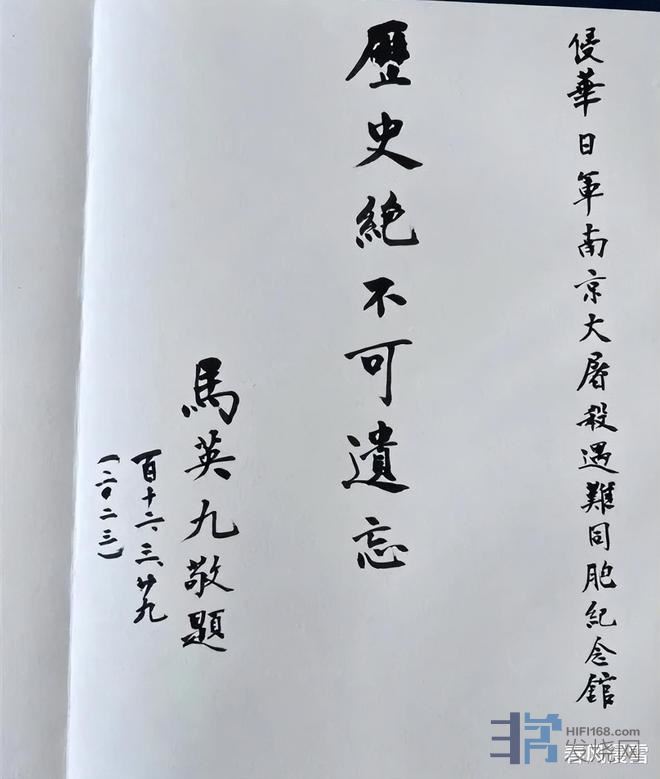 侵華日軍南京大屠殺遇難同胞紀念館
歷史絕不可遺忘
馬英九敬題
百十二、三、廿九
(二〇二三)
HIFI168.com
发烧网